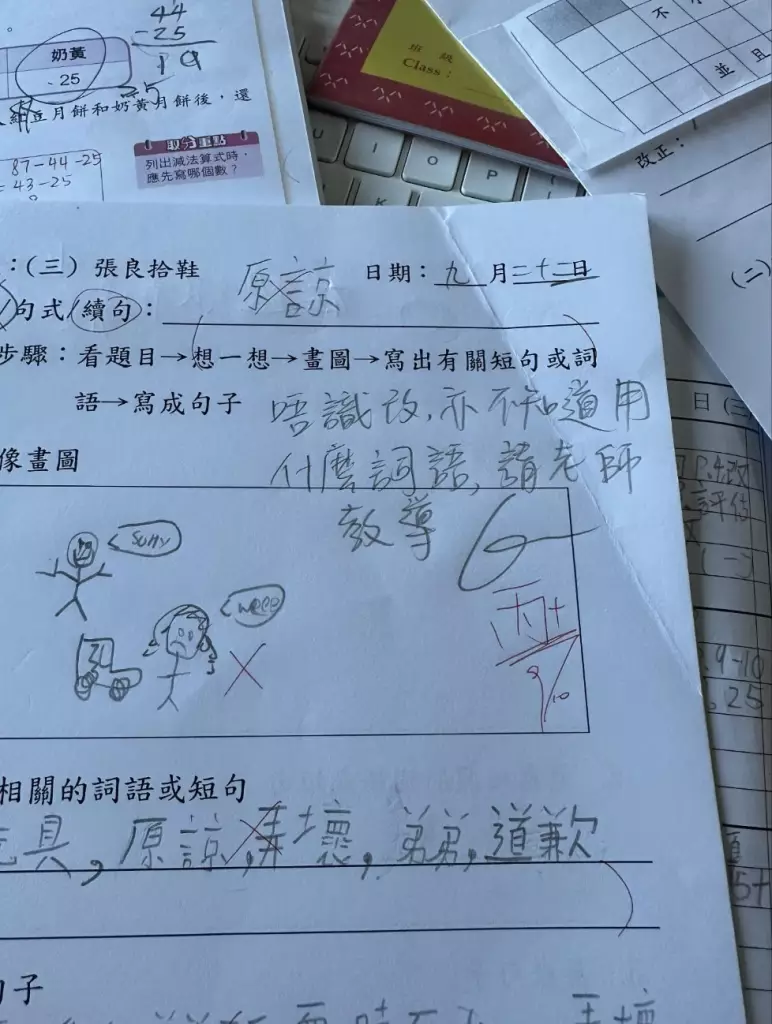 44
-25
19
奶黃
25
25
豆月餅和奶黃月餅後，還
取分重點
列出減法算式時，
應先寫哪個數？
87-44-25
=43-25
班級
Class：
U I O P
K
不
並且
改正：
(二)
：(三) 張良拾鞋
原諒
日期：九月二十二日
句式/續句：
步驟：看題目→想一想→畫圖→寫出有關短句或詞
語→寫成句子
唔識改，亦不知道用
什麼詞語，請老師
教導
像畫圖
sorry
weee
9/10
相關的詞語或短句
玩具，原諒，弄壞，弟弟，道歉
句子
弄壞
日(三)
改
評估
(一)
9-10
25
5+